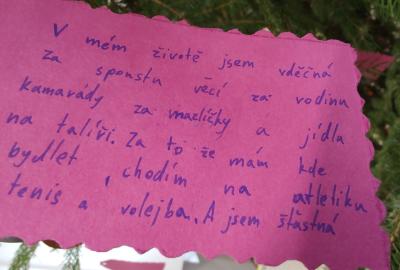 V mém životě jsem vděčná
za spoustu věcí za rodinu
kamarády za mazlíčky a jídla
na talíři. Za to že mám kde
bydlet, chodím na atletiku
tenis a volejbal. A jsem šťastná